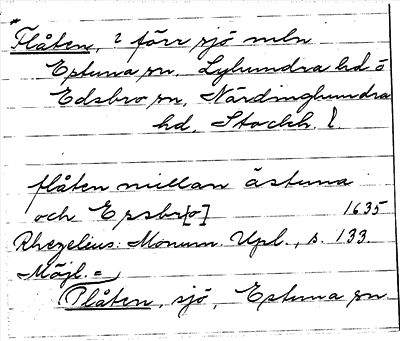 *Flåten, ? förr sjö mln
Estuna sn, Lyhundra hd o
Edsbro sn, Närdinghundra
hd, Stockh. l.
flåten millan ästuna
och Epsbr[o] 1635
Rhezelius: Monum. Upl., s. 133.
Möjl. =
Plåten, sjö, Estuna sn